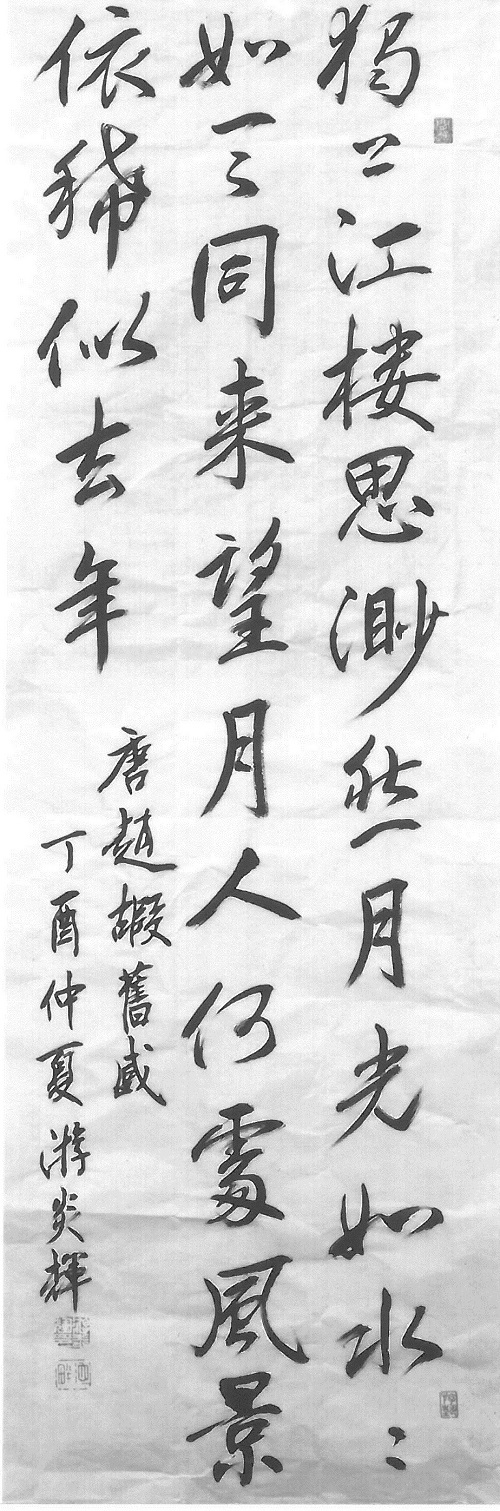 獨上江楼思渺然月光如水〻
如天同来望月人何處風景
依稀似去年
唐趙嘏舊感
丁酉仲夏游炎輝